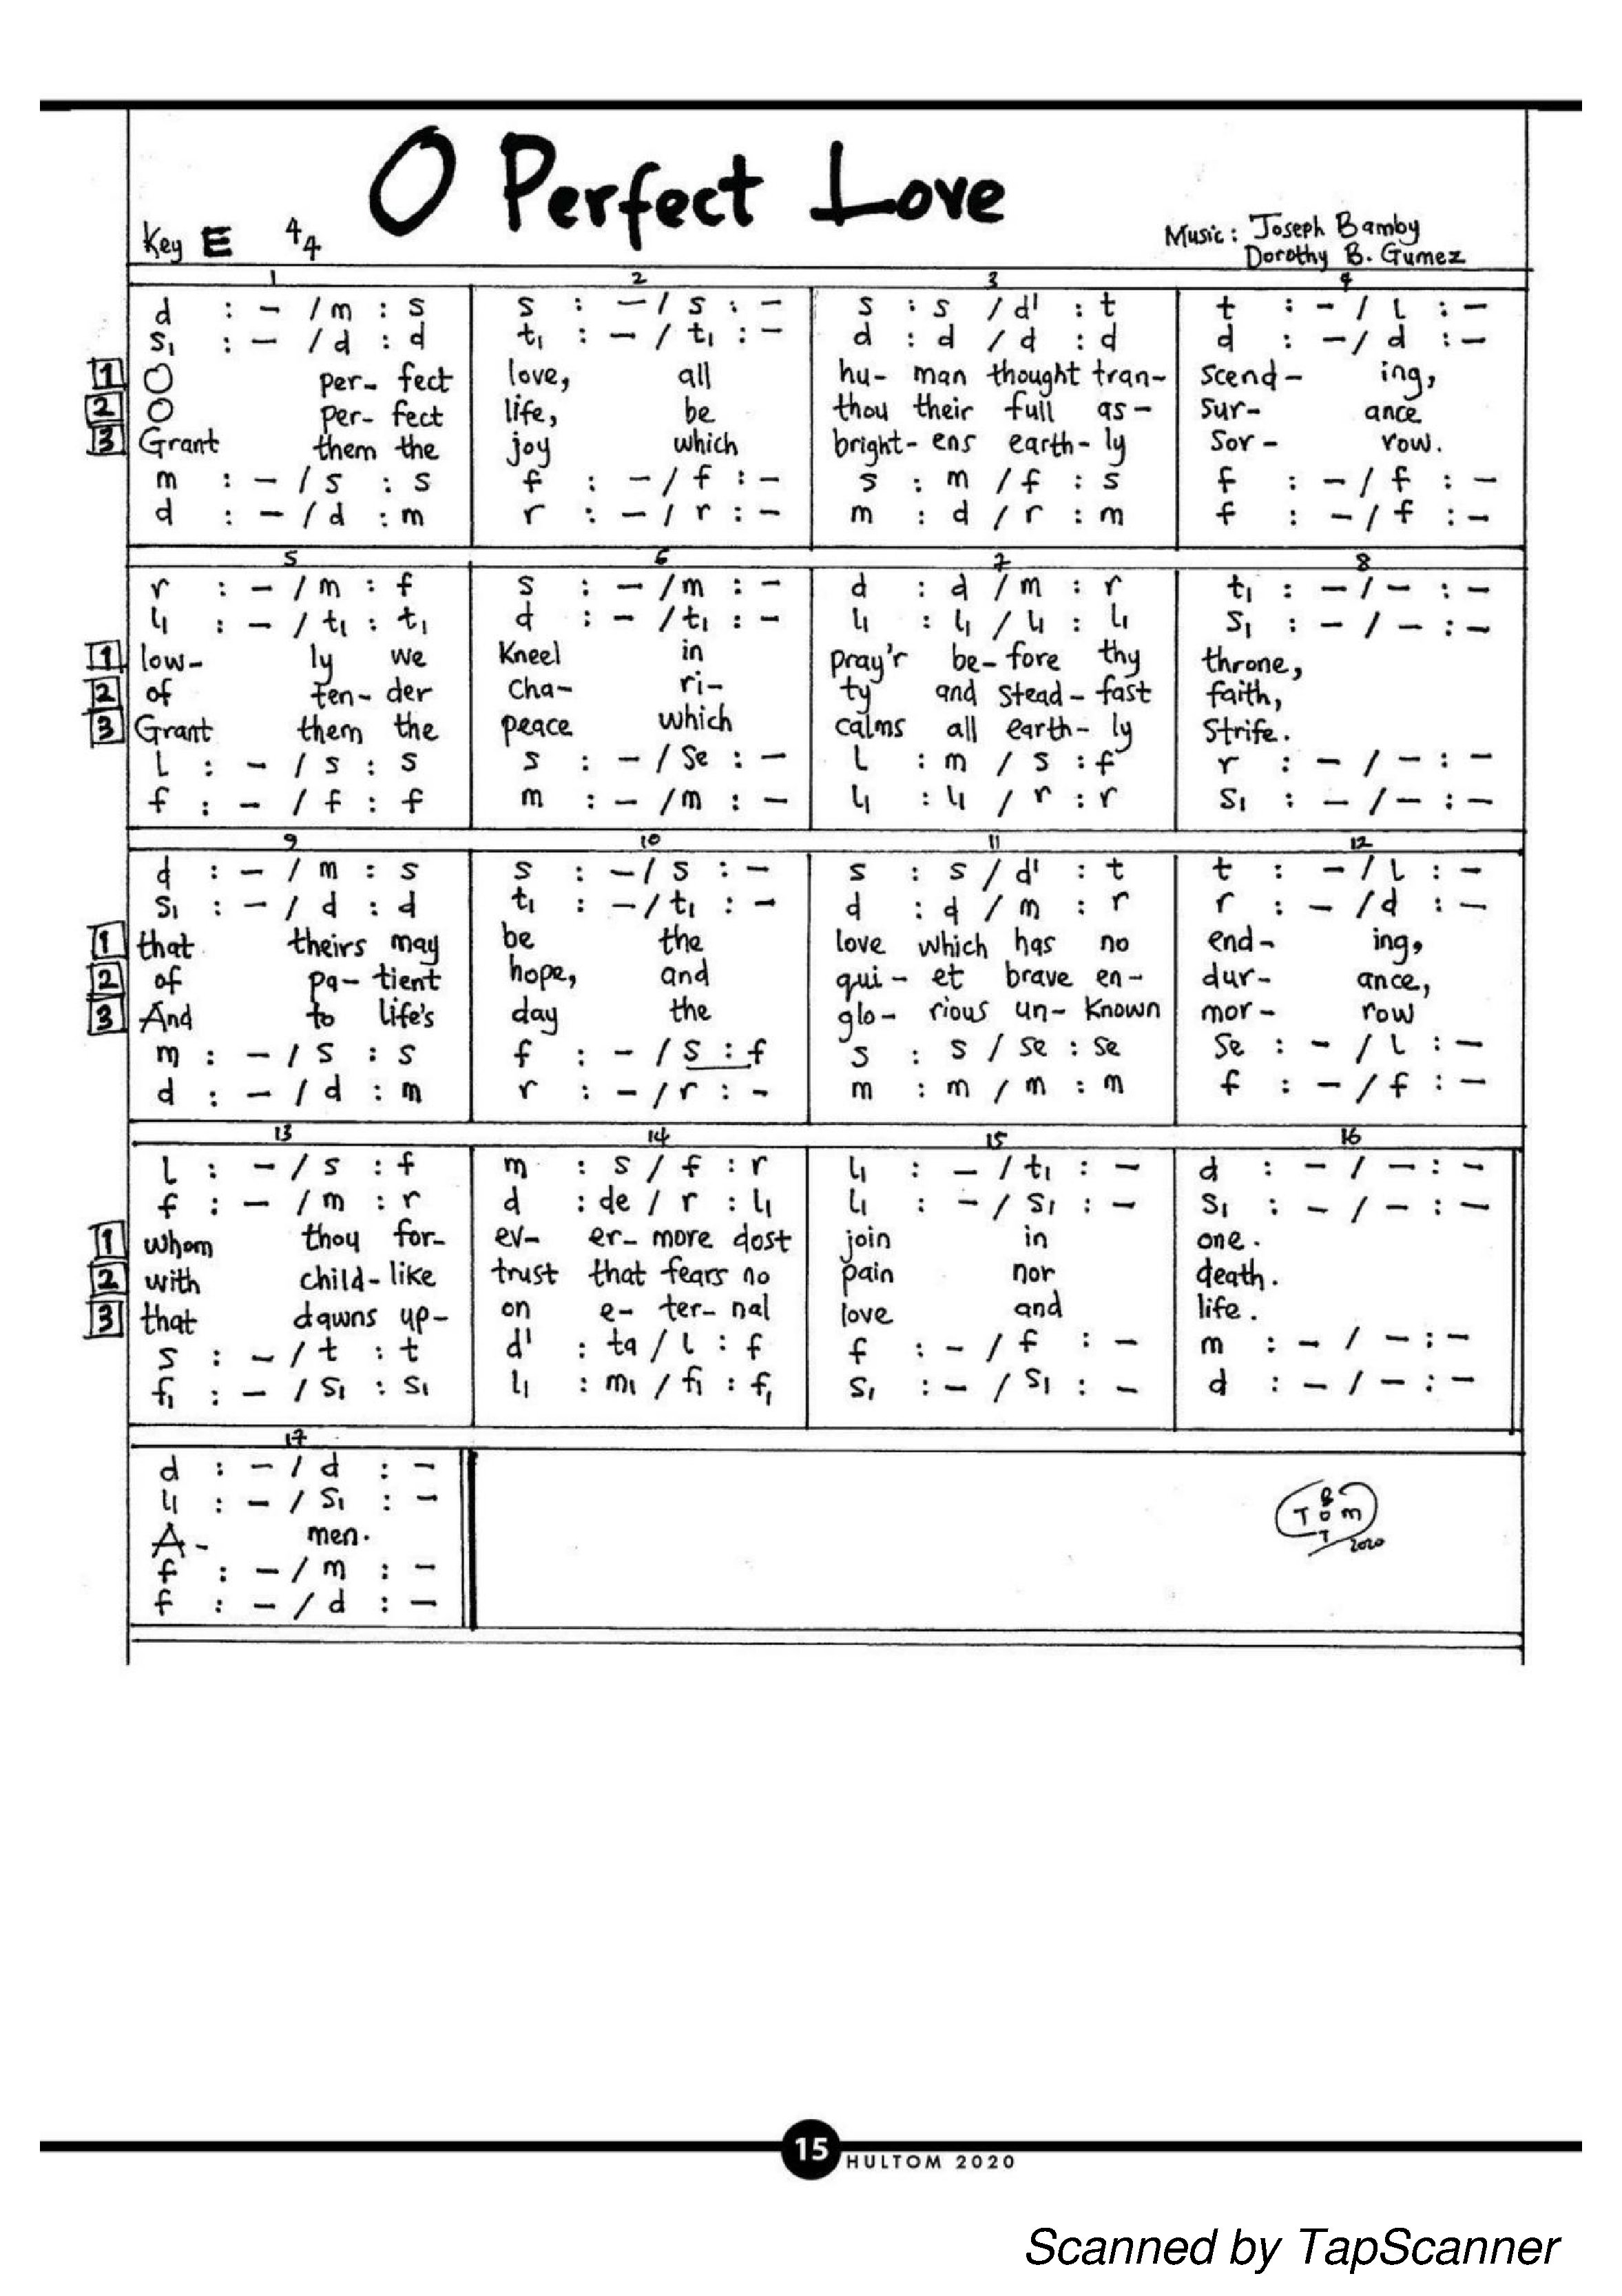 O Perfect Love
Key E 4 4
Music: Joseph Bamby
Dorothy B. Gumez
1 2 3 4
d : - / m : s s : - / s : - s : s / d' : t t : - / l : -
s₁ : - / d : d t₁ : - / t₁ : - d : d / d : d d : - / d : -
1 O per- fect love, all hu- man thought tran- scend- ing,
2 O per- fect life, be thou their full as- sur- ance
3 Grant them the joy which bright- ens earth- ly sor- row.
m : - / s : s f : - / f : - s : m / f : s f : - / f : -
d : - / d : m r : - / r : - m : d / r : m f : - / f : -
5 6 7 8
r : - / m : f s : - / m : - d : d / m : r t₁ : - / - : -
l₁ : - / t₁ : t₁ d : - / t₁ : - l₁ : l₁ / l₁ : l₁ s₁ : - / - : -
1 low- ly we kneel in pray'r be- fore thy throne,
2 of ten- der cha- ri- ty and stead- fast faith,
3 Grant them the peace which calms all earth- ly strife.
l : - / s : s s : - / se : - l : m / s : f r : - / - : -
f : - / f : f m : - / m : - l₁ : l₁ / r : r s₁ : - / - : -
9 10 11 12
d : - / m : s s : - / s : - s : s / d' : t t : - / l : -
s₁ : - / d : d t₁ : - / t₁ : - d : d / m : r r : - / d : -
1 that theirs may be the love which has no end- ing,
2 of pa- tient hope, and qui- et brave en- dur- ance,
3 And to life's day the glo- rious un- known mor- row
m : - / s : s f : - / s : f s : s / se : se se : - / l : -
d : - / d : m r : - / r : - m : m / m : m f : - / f : -
13 14 15 16
l : - / s : f m : s / f : r l₁ : - / t₁ : - d : - / - : -
f : - / m : r d : de / r : l₁ l₁ : - / s₁ : - s₁ : - / - : -
1 whom thou for- ev- er- more dost join in one.
2 with child- like trust that fears no pain nor death.
3 that dawns up- on e- ter- nal love and life.
s : - / t : t d' : ta / l : f f : - / f : - m : - / - : -
f₁ : - / s₁ : s₁ l₁ : m₁ / f₁ : f₁ s₁ : - / s₁ : - d : - / - : -
17
d : - / d : -
l₁ : - / s₁ : -
A- men.
f : - / m : -
f : - / d : -
2020
15
HULTOM 2020
Scanned by TapScanner